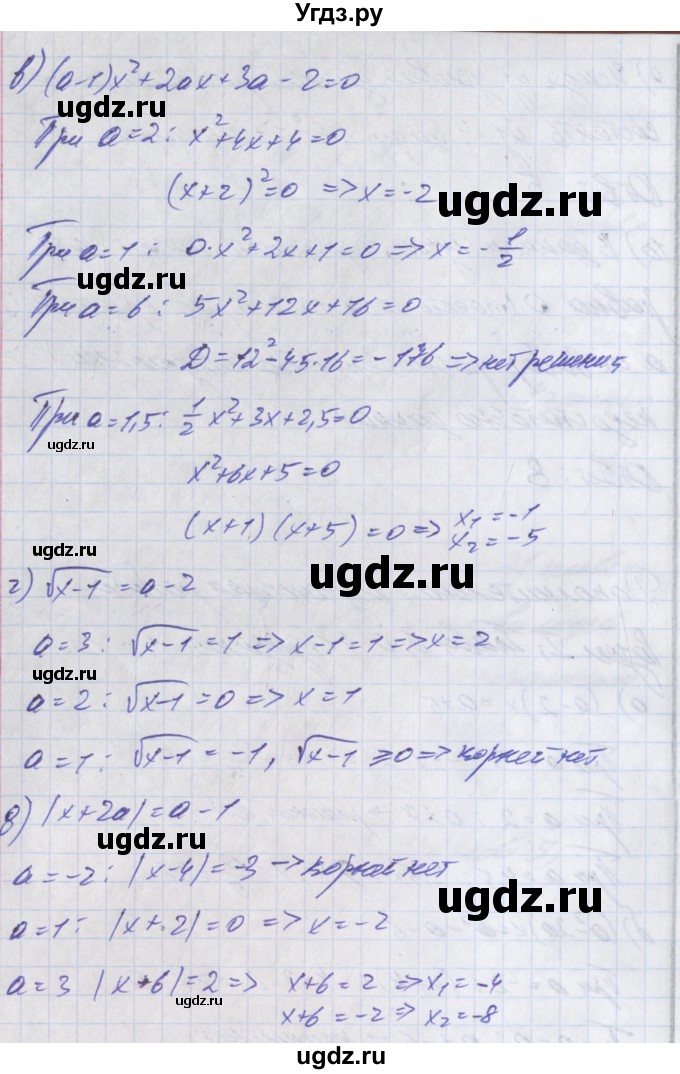 Угдз.ру
в) (a-1)x²+2ax+3a-2=0
При a=2: x²+4x+4=0
ugdz.ru
(x+2)²=0 => x=-2
ugdz.ru
При a=1: 0·x²+2x+1=0 => x=-1/2
ugdz.ru
При a=6: 5x²+12x+16=0
D=12²-4·5·16=-176 => нет решения
ugdz.ru
При a=1,5: 1/2 x²+3x+2,5=0
ugdz.ru
x²+6x+5=0
ugdz.ru
(x+1)(x+5)=0 => x₁=-1
x₂=-5
ugdz.ru
г) √x-1=a-2
a=3: √x-1=1 => x-1=1 => x=2
ugdz.ru
ugdz.ru
a=2: √x-1=0 => x=1
a=1: √x-1=-1, √x-1≥0 => корней нет
ugdz.ru
д) |x+2a|=a-1
ugdz.ru
a=-2: |x-4|=-3 -> корней нет
ugdz.ru
a=1: |x+2|=0 => x=-2
ugdz.ru
a=3 |x+6|=2 => x+6=2 => x₁=-4
x+6=-2 => x₂=-8
ugdz.ru